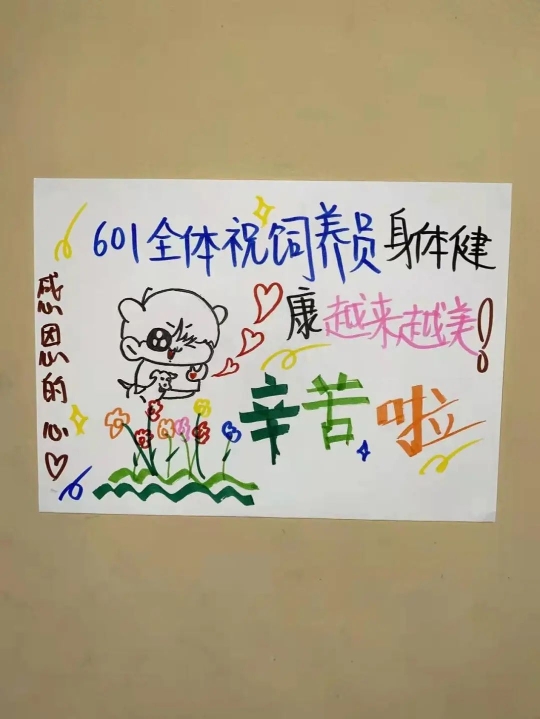 601全体祝饲养员身体健
康越来越美!
辛苦啦
感恩的心